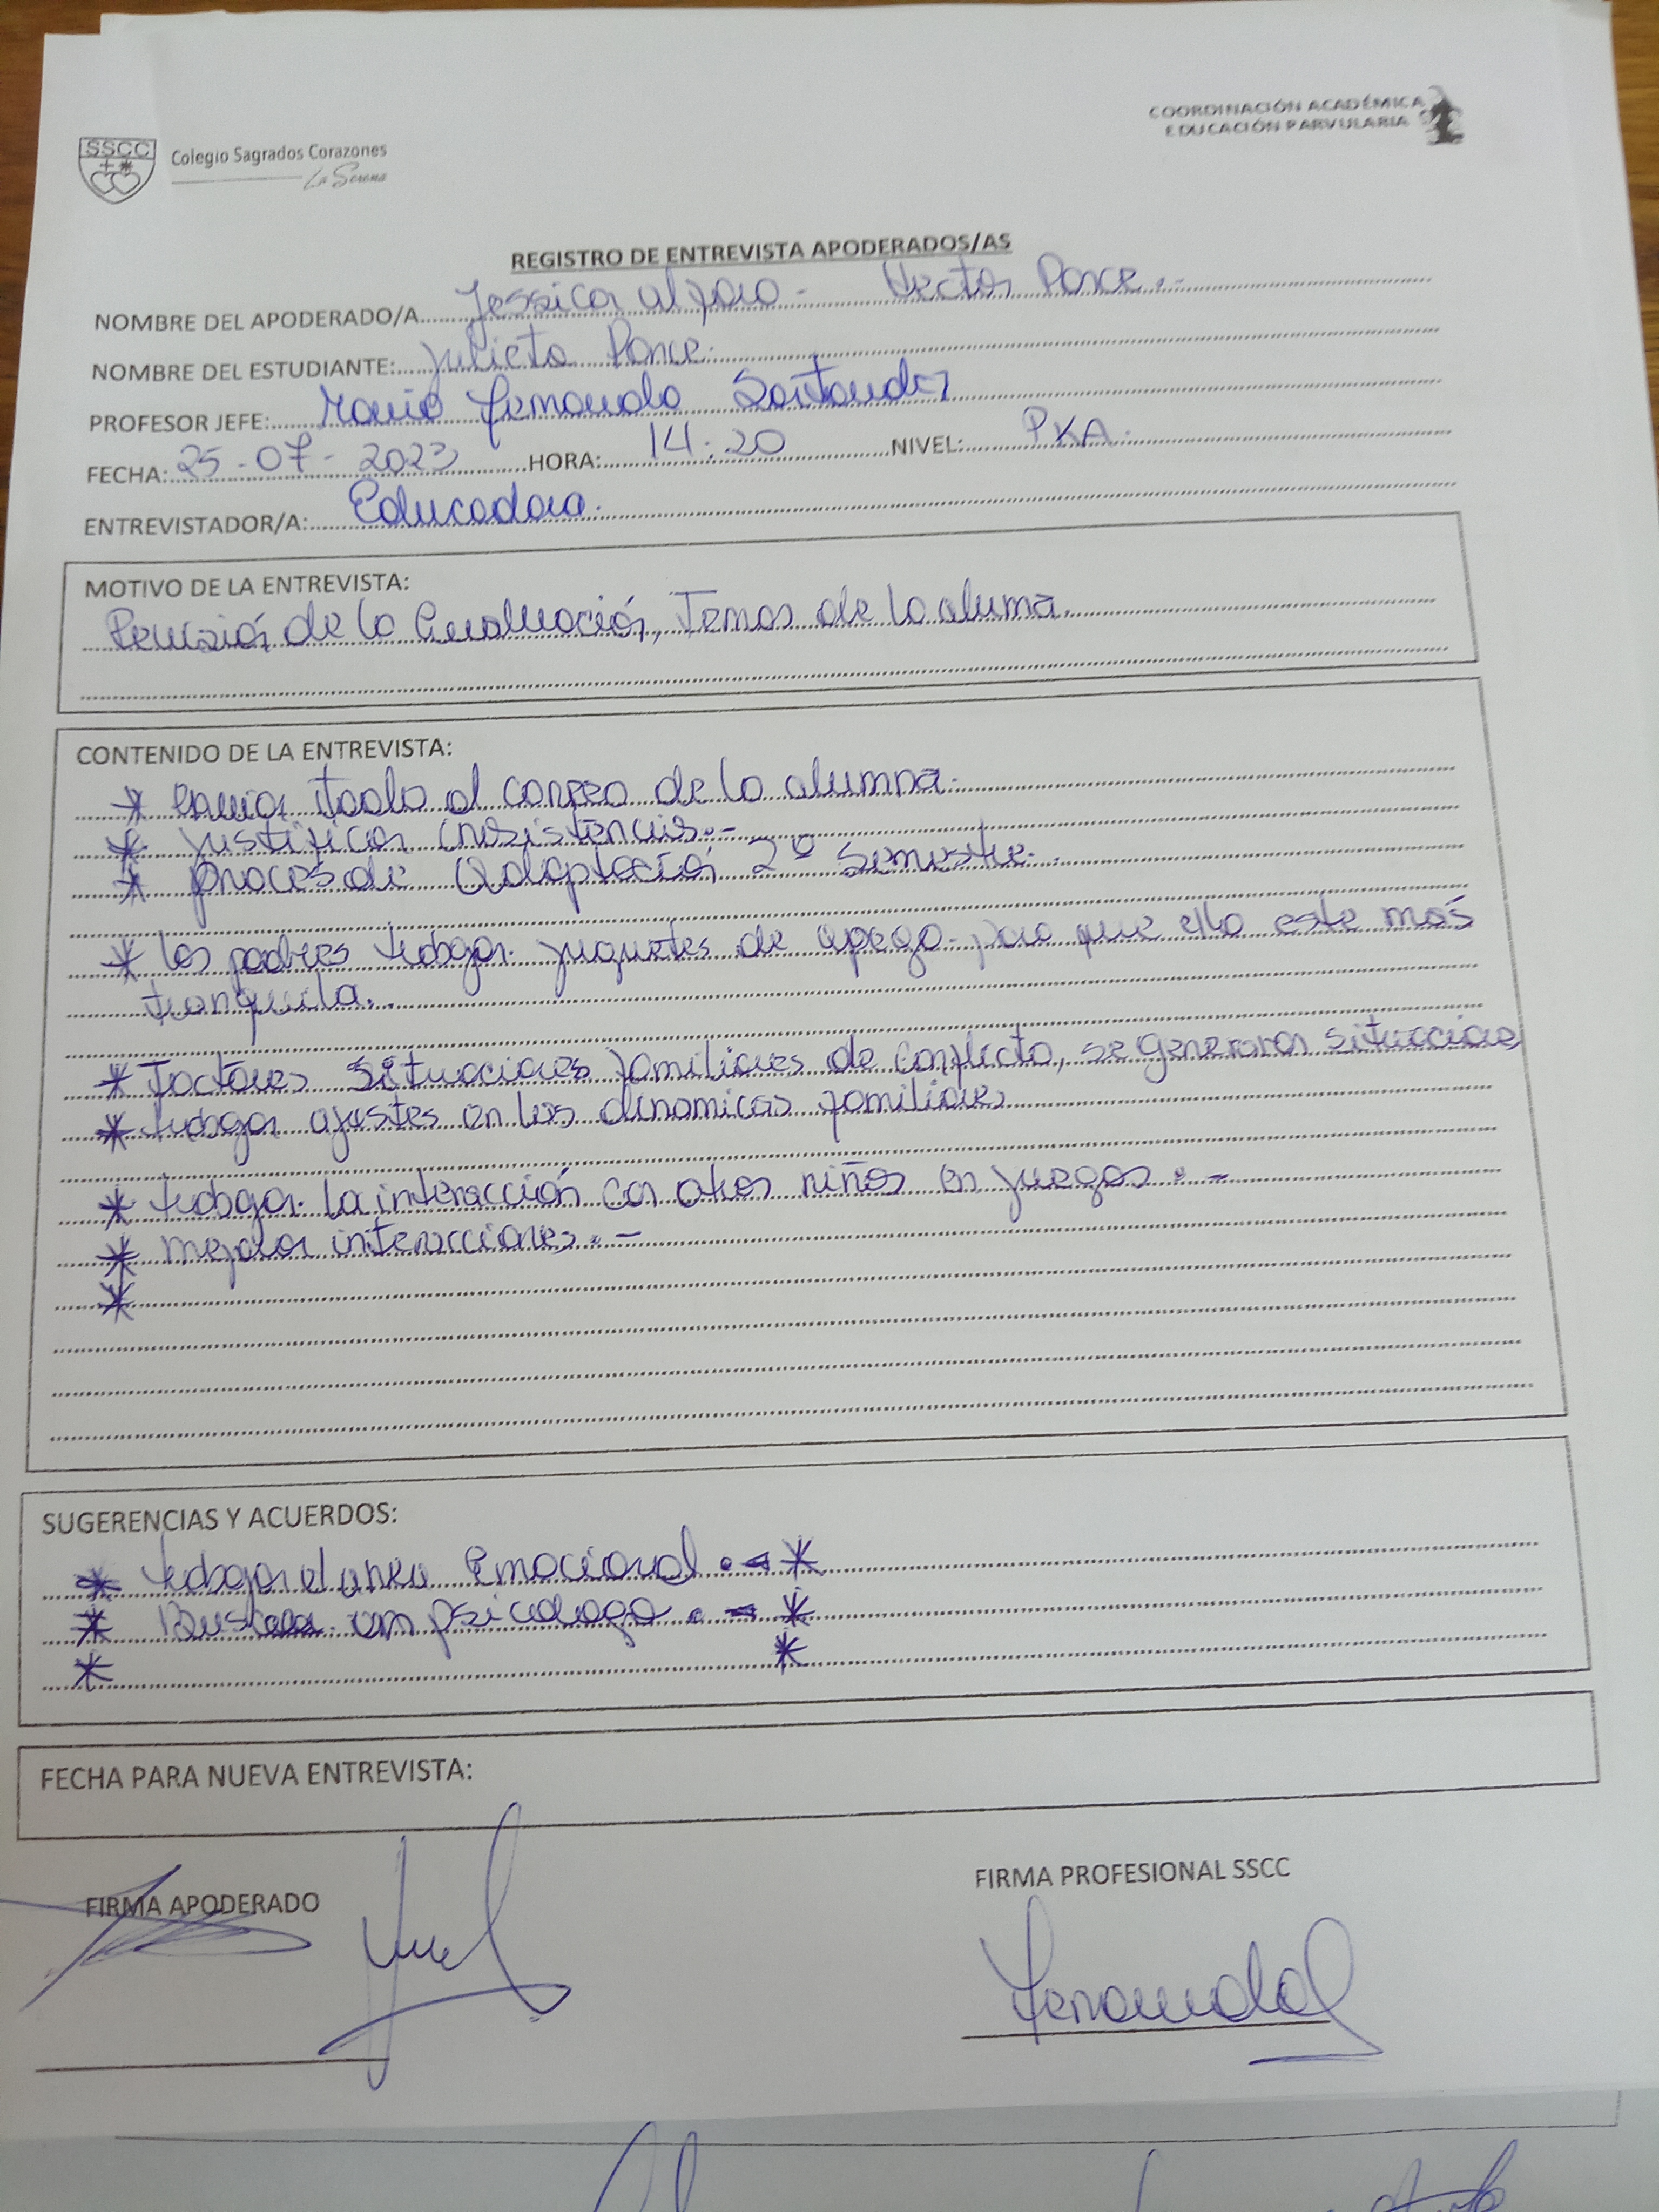 SSCC
Colegio Sagrados Corazones
La Serena
COORDINACIÓN ACADÉMICA
EDUCACIÓN PARVULARIA
REGISTRO DE ENTREVISTA APODERADOS/AS
NOMBRE DEL APODERADO/A Jessica Alfaro - Hector Ponce.-
NOMBRE DEL ESTUDIANTE: Julieta Ponce.
PROFESOR JEFE: María Fernanda Santander
FECHA: 25-07-2023 HORA: 14:20 NIVEL: PKA.
ENTREVISTADOR/A: Educadora.
MOTIVO DE LA ENTREVISTA:
Revisión de la Evaluación, Temas de la aluma.
CONTENIDO DE LA ENTREVISTA:
* Enviar todo al correo de la alumna.
* Justificar inasistencias.-
* proces de Adaptación 2º semestre.
* Los padres trabajar juguetes de apego para que ella este más
tranquila.
* Factores situaciones familiares de conflicto, se generaron situaciones
* trabajar ajustes en las dinamicas familiares
* trabajar la interacción con otros niños en juegos.-
* mejorar interacciones.-
*
SUGERENCIAS Y ACUERDOS:
* trabajar el area Emocional.- *
* Buscar un psicologo.- *
* *
FECHA PARA NUEVA ENTREVISTA:
FIRMA APODERADO
FIRMA PROFESIONAL SSCC
Fernanda